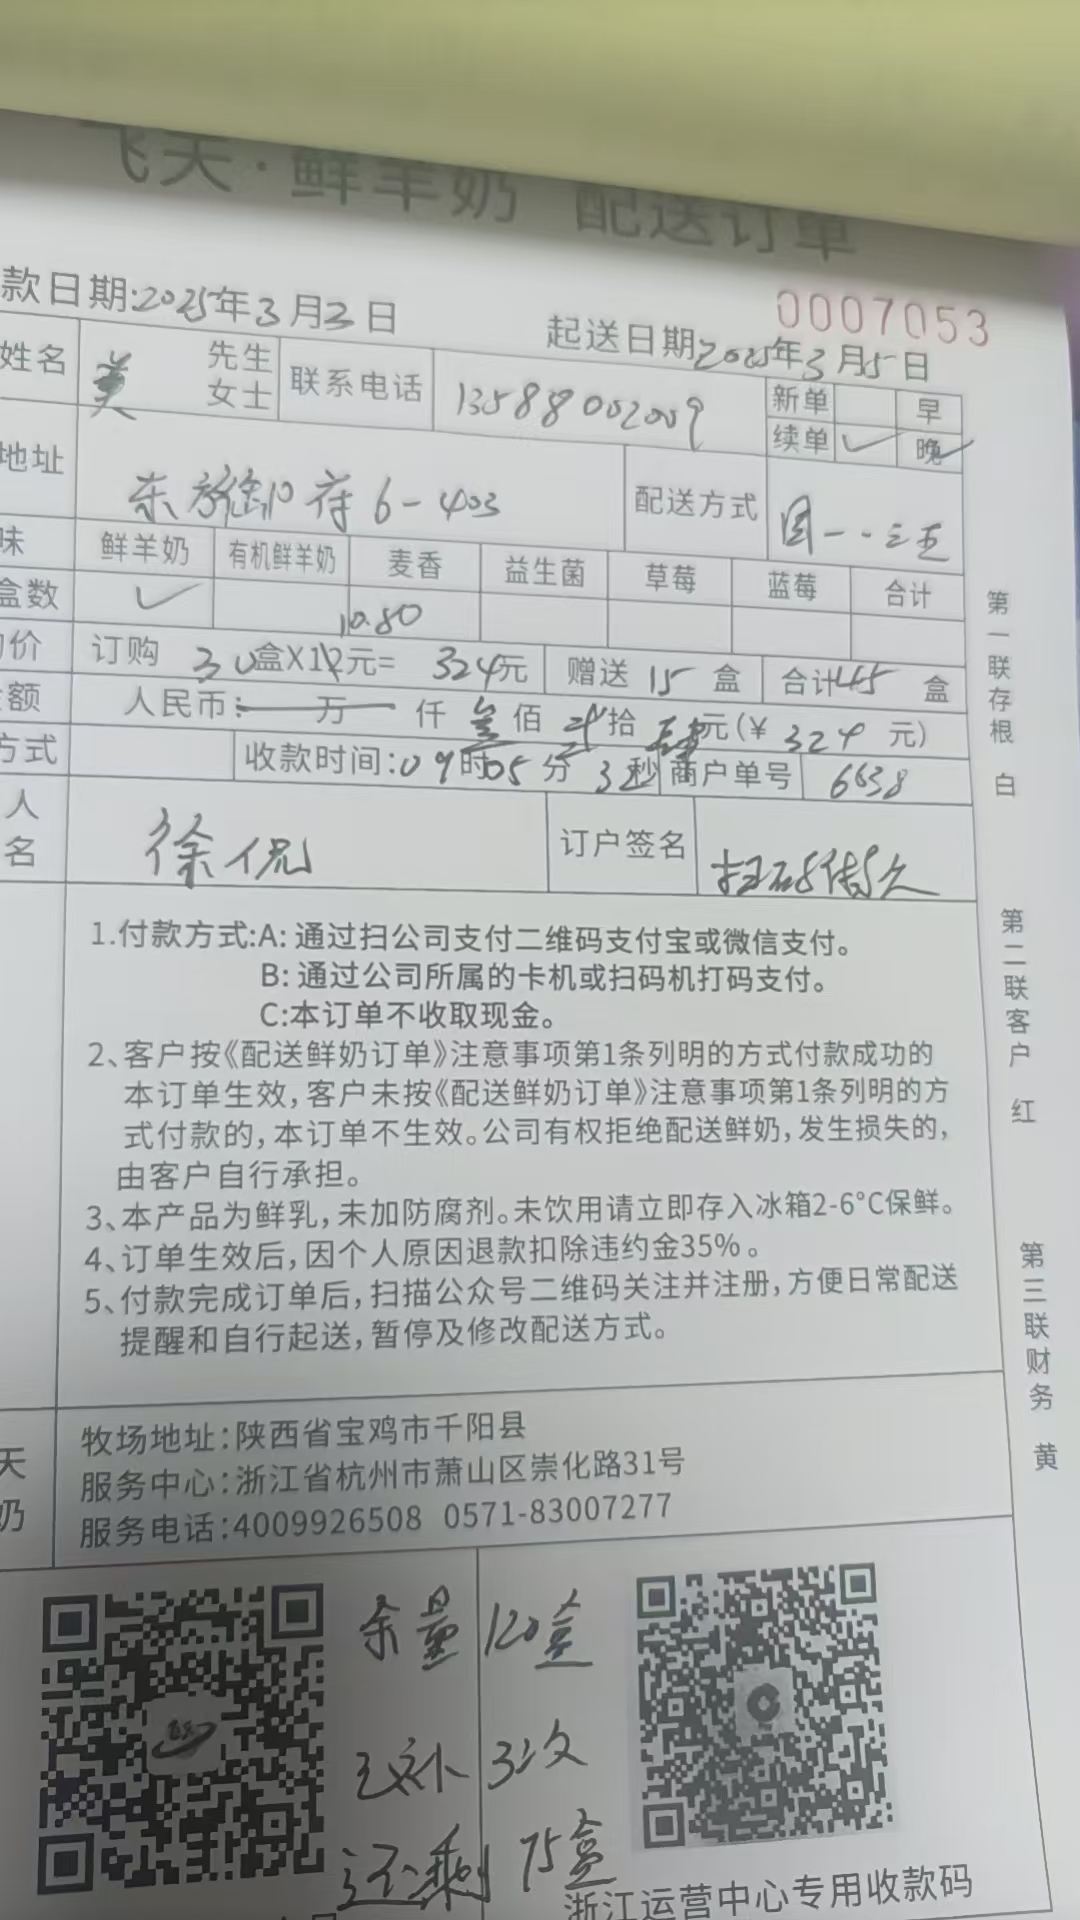 飞天·鲜羊奶 配送订单
0007053
款日期:2025年3月3日 起送日期2025年3月5日
姓名 美 先生 女士 联系电话 13588002009 新单 早
续单 ✓ 晚 ✓
地址 东方 6-403 配送方式 周一..三五
味 鲜羊奶 有机鲜羊奶 麦香 益生菌 草莓 蓝莓 合计
盒数 ✓
10.80
价 订购 30盒X12元= 324元 赠送 15 盒 合计45 盒
额 人民币: 万 仟 叁佰 贰拾 肆元(¥ 324 元)
方式 收款时间:09时05分3秒 商户单号 6638
人
名 徐侃 订户签名 扫码
1.付款方式:A: 通过扫公司支付二维码支付宝或微信支付。
B: 通过公司所属的卡机或扫码机打码支付。
C:本订单不收取现金。
2、客户按《配送鲜奶订单》注意事项第1条列明的方式付款成功的
本订单生效,客户未按《配送鲜奶订单》注意事项第1条列明的方
式付款的,本订单不生效。公司有权拒绝配送鲜奶,发生损失的,
由客户自行承担。
3、本产品为鲜乳,未加防腐剂。未饮用请立即存入冰箱2-6°C保鲜。
4、订单生效后,因个人原因退款扣除违约金35%。
5、付款完成订单后,扫描公众号二维码关注并注册,方便日常配送
提醒和自行起送,暂停及修改配送方式。
天
奶
牧场地址:陕西省宝鸡市千阳县
服务中心:浙江省杭州市萧山区崇化路31号
服务电话:4009926508 0571-83007277
余量120盒
3次
还剩75盒
浙江运营中心专用收款码
第一联存根 白
第二联客户 红
第三联财务 黄